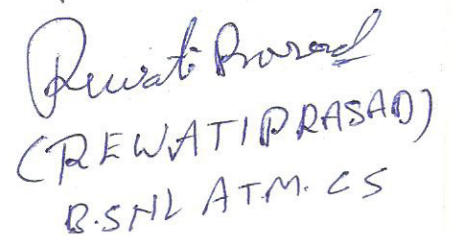 Rewati Prasad
(REWATIPRASAD)
B.SNL A.T.M. CS